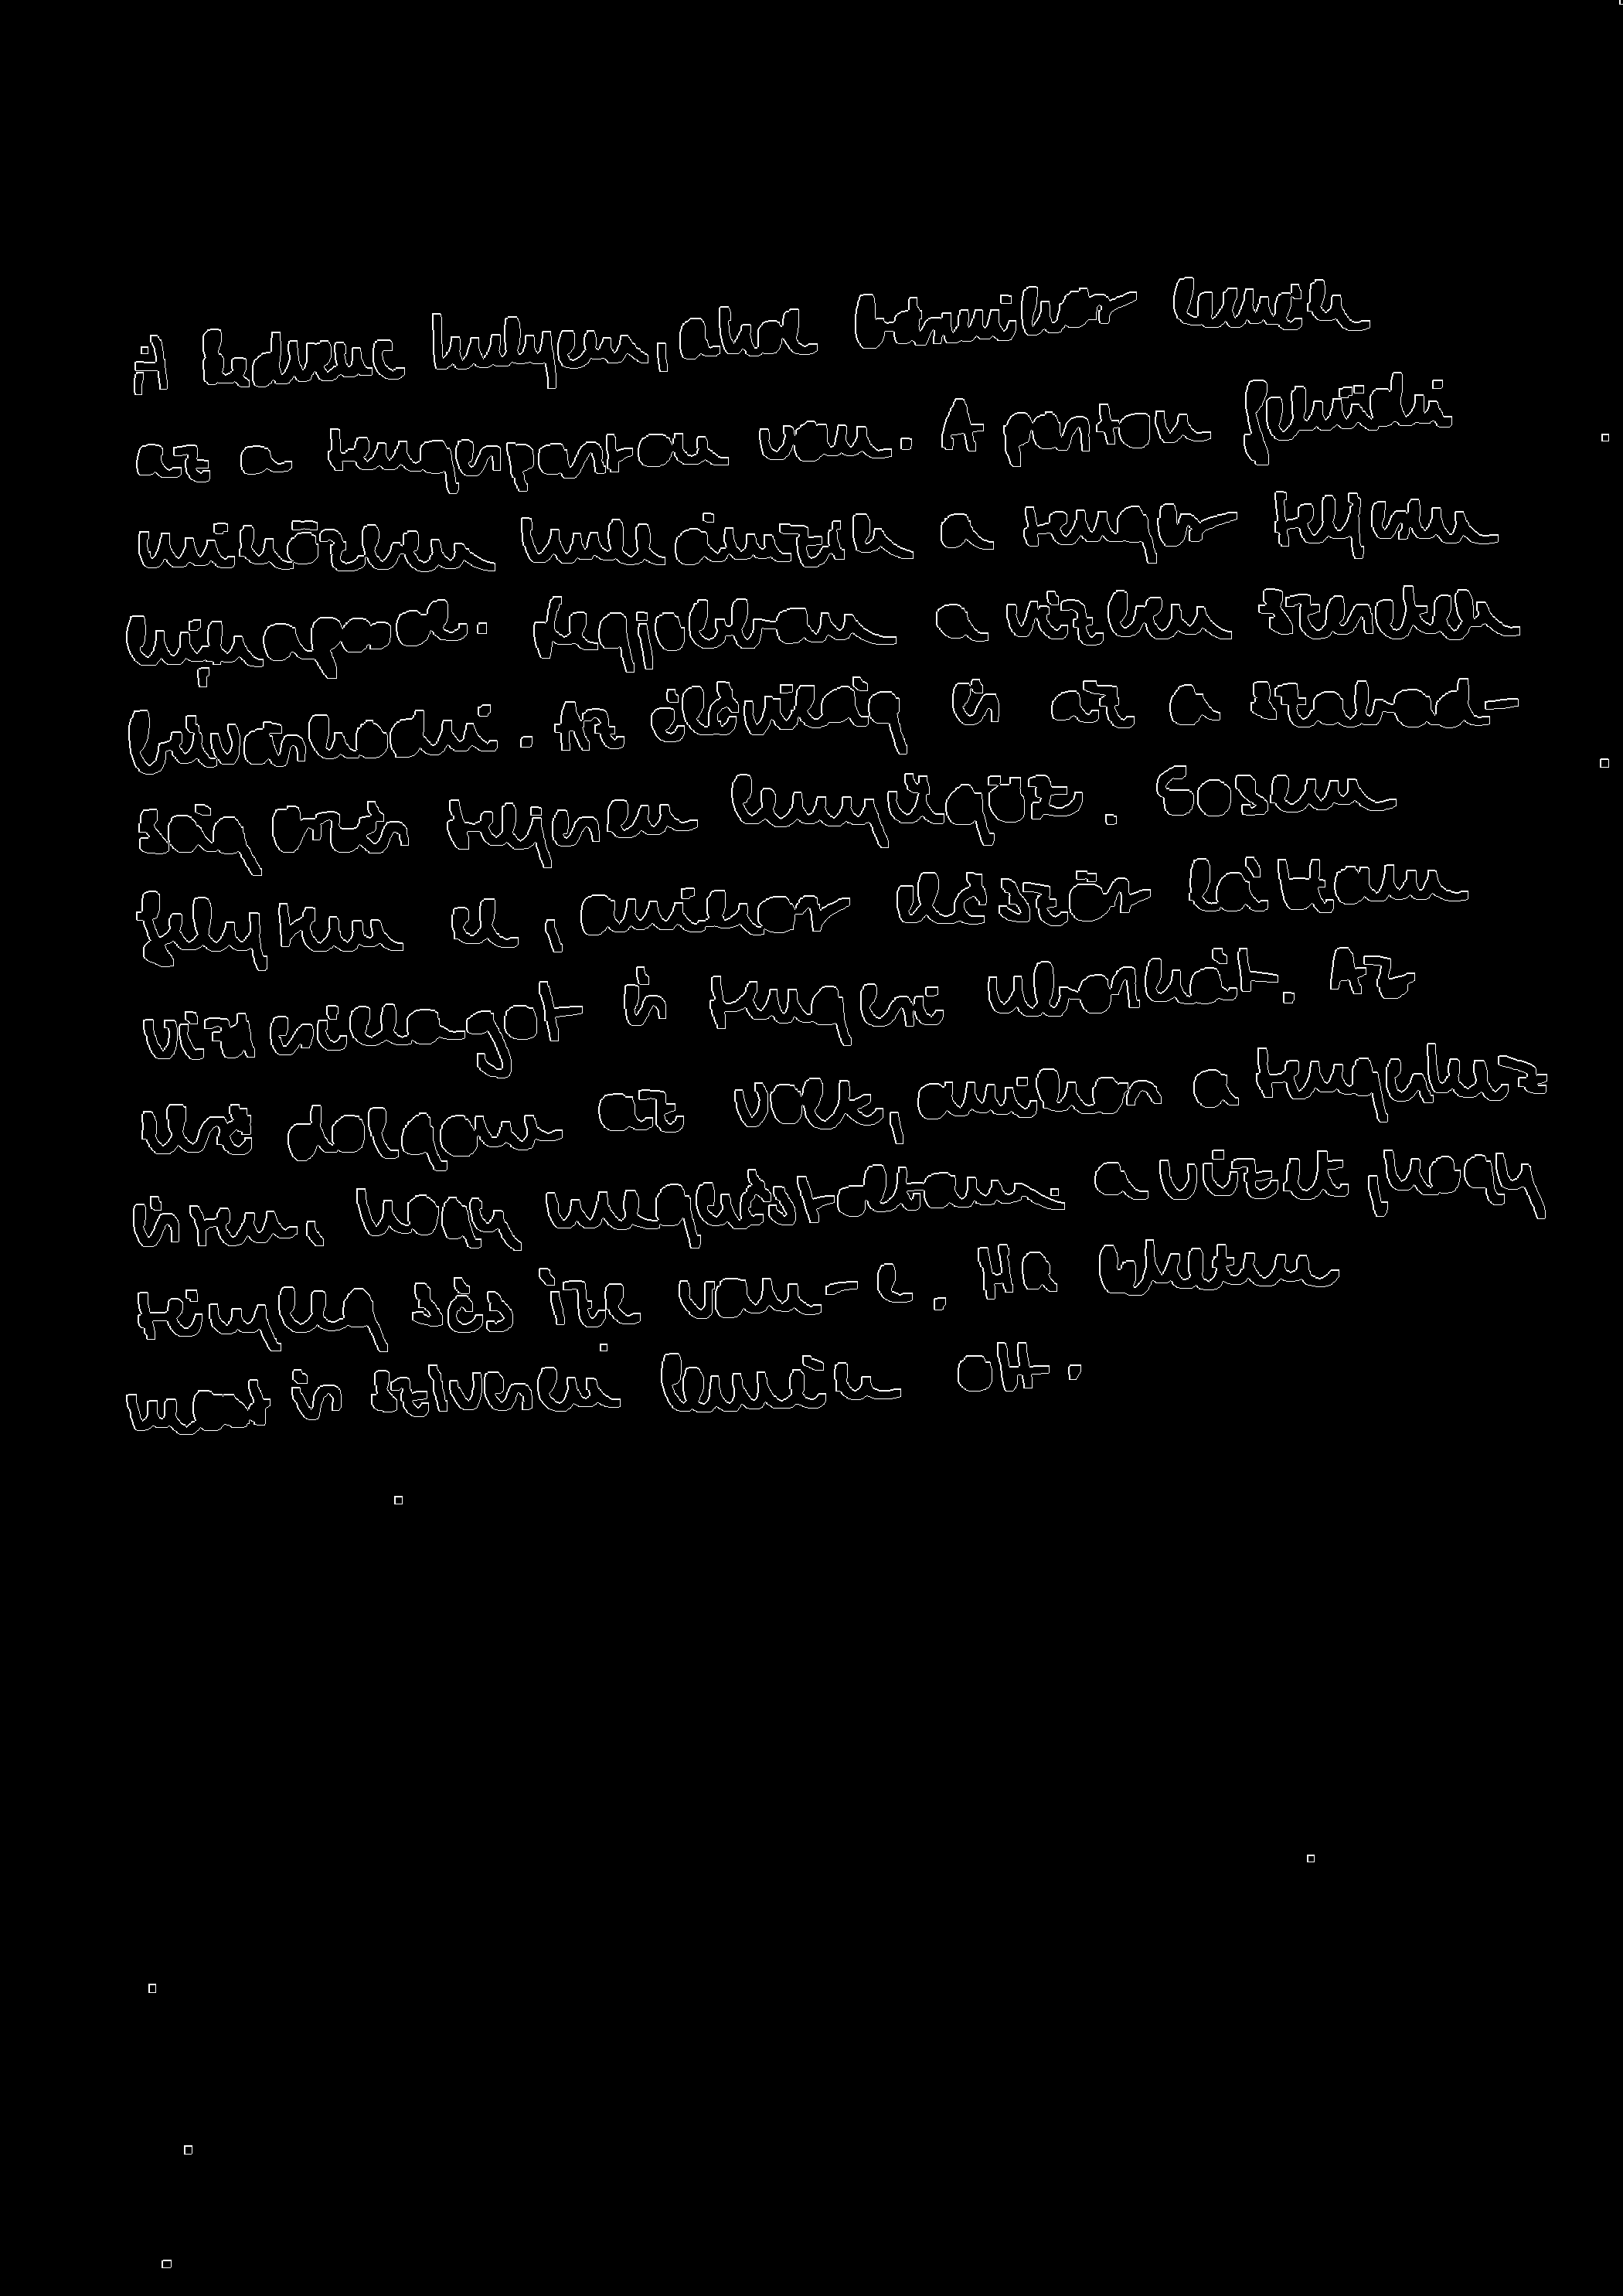 A kedvenc helyem, ahol bármikor lennék
az a tengerparton van. A parton feküdni
miközben hullámzik a tenger teljesen
kikapcsol. Legjobban a vízben szeretek
búvárkodni. Az élővilág és az a szabad-
ság érzés teljesen lenyűgöz. Sosem
felejtem el, amikor először láttam
vízicsillagot és tengeri uborkát. Az
első dolgom az volt, amikor a tengerhez
értem, hogy megkóstoltam a vizet, hogy
tényleg sós íze van-e. Ha tehetem
most is szívesen lennék ott.